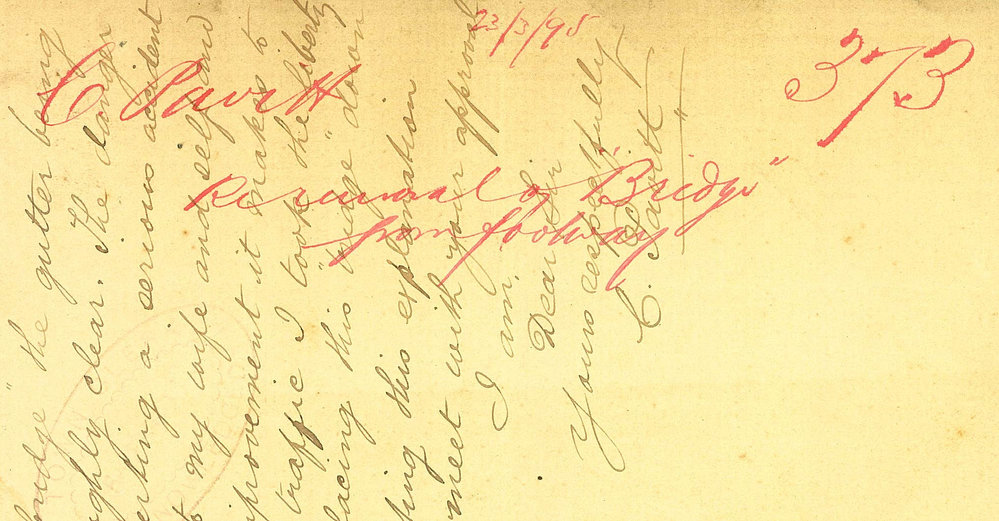 23/3/95
373
C Pavitt
Removal of "Bridge"
from footway
bridge" the gutter being
clear. The danger
a serious accident
my wife and self and
it makes to
traffic I took the liberty
this "bridge" down
this explanation
meet with your approval
I am.
Dear Sir
Yours respectfully
C. Pavitt